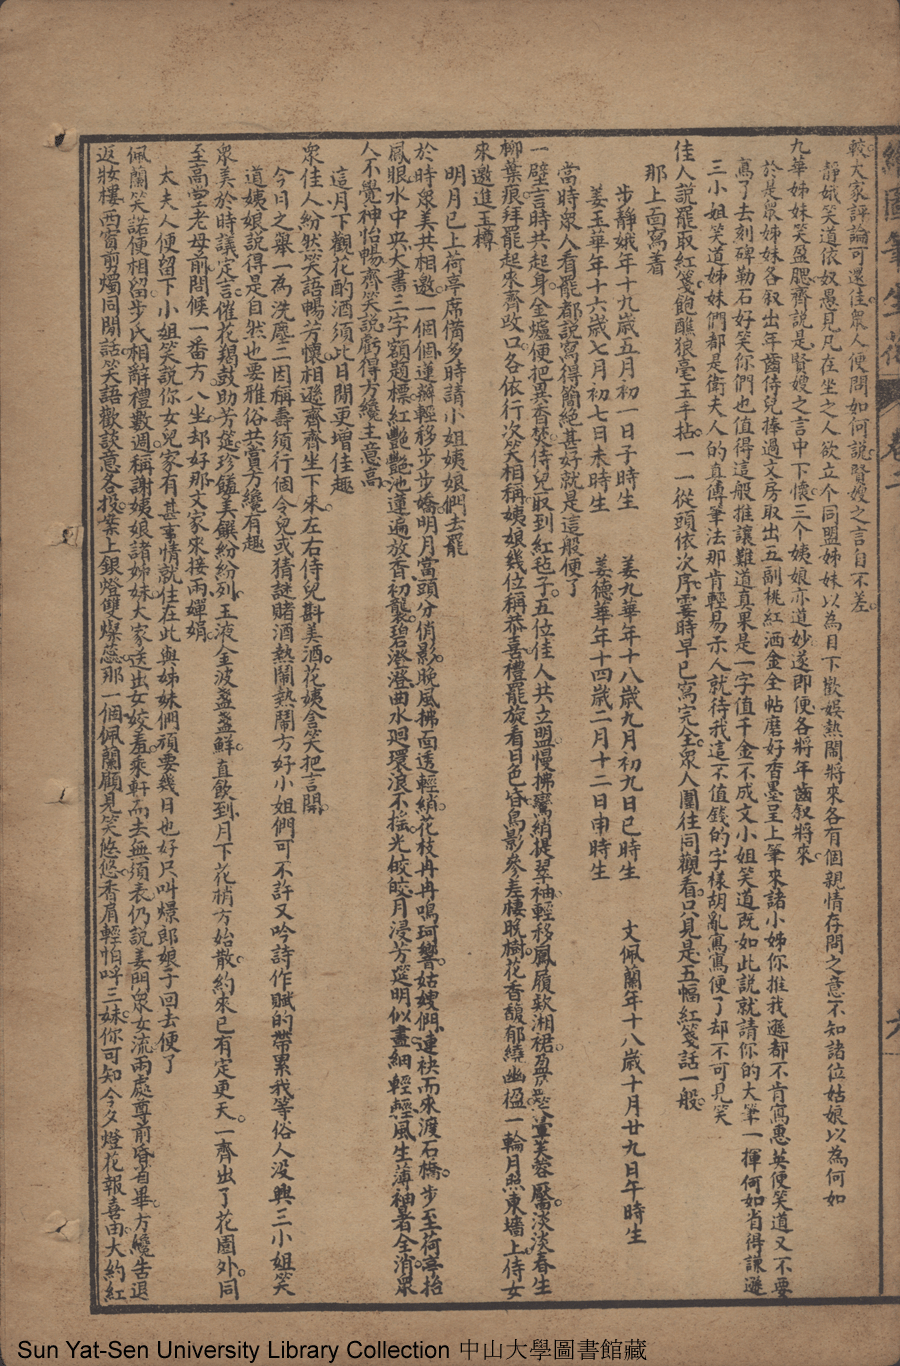 繪圖筆生花 卷二 六
較大家評論可還佳衆人便問如何説賢嫂之言自不差
靜娥笑道依奴愚見凡在坐之人欲立个同盟姊妹以為目下歡娛熱鬧將來各有個親情存問之意不知諸位姑娘以為何如
九華姊妹笑盈腮齊説是賢嫂之言中下懷三个姨娘亦道妙遂即便各將年齒叙將來
於是衆姊妹各叙出年齒侍兒捧過文房取出五副桃紅洒金全帖磨好香墨呈上筆來諸小姊你推我遜都不肯寫惠英便笑道又不要
寫了去刻碑勒石好笑你們也值得這般推讓難道真果是一字值千金不成文小姐笑道既如此説就請你的大筆一揮何如省得謙遜
三小姐笑道姊妹們都是衛夫人的真傳筆法那肯輕易示人就待我這不值錢的字樣胡亂寫寫便了却不可見笑
佳人説罷取紅箋飽醮狼毫玉手拈一一從頭依次序霎時早已寫完全衆人圍往同觀看只見是五幅紅箋話一般
那上面寫着
步靜娥年十九歲五月初一日子時生 姜九華年十八歲九月初九日巳時生 文佩蘭年十八歲十月廿九日午時生
姜玉華年十六歲七月初七日未時生 姜德華年十四歲二月十二日申時生
當時衆人看罷都説寫得簡絶甚好就是這般便了
一壁言時共起身金爐便把異香焚侍兒取到紅毡子五位佳人共立盟慢拂鸞綃提翠袖輕移鳳履欵湘裙盈盈 芙蓉靨淡淡春生
柳葉痕拜罷起來齊改口各依行次笑相稱姨娘幾位稱恭喜禮罷旋看日色昏鳥影參差棲晚樹花香馥郁繞幽楹一輪月照東墻上侍女
來邀進玉樽
明月已上荷亭席備多時請小姐姨娘們去罷
於時衆美共相邀一個個蓮瓣輕移步步嬌明月當頭分俏影晚風拂面透輕綃花枝冉冉鳴珂響姑嫂們連袂而來渡石橋步至荷亭抬
鳳眼水中央大書三字額題標紅艷艷池蓮遍放香初襲碧澄澄曲水廻環浪不搖光皎皎月浸芳筵明似晝細輕輕風生薄袖暑全消衆
人不覺神怡暢齊笑説虧得方纔主意高
這月下觀花酌酒須比日間更增佳趣
衆佳人紛然笑語暢芳懷相遜齊齊坐下來左右侍兒斟美酒花姨含笑把言開
今日之舉一為洗塵二因稱壽須行個令兒或猜謎賭酒熱鬧熱鬧方好小姐們可不許又吟詩作賦的帶累我等俗人没興三小姐笑
道姨娘説得是自然也要雅俗共賞方纔有趣
衆美於時議定言催花羯鼓助芳筵珍饈美饌紛紛列玉液金波盞盞鮮直飲到月下花梢方始散約來已有定更天一齊出了花園外同
至高堂老母前問候一番方八坐却好那文家來接兩嬋娟
太夫人便留下小姐笑説你女兒家有甚事情就住在此與姊妹們頑耍幾日也好只叫憬郎娘子回去便了
佩蘭笑諾便相留步氏相辭禮數週稱謝姨娘諸姊妹大家送出女姣羞乘軒而去無須表仍説姜門衆女流兩處尊前昏省畢方纔告退
返妝樓西窗剪燭同閒話笑語歡談意各投案上銀燈雙燦蕊那一個佩蘭顧見笑悠悠香肩輕怕呼三妹你可知今夕燈花報喜由大約紅
Sun Yat-Sen University Library Collection 中山大學圖書館藏